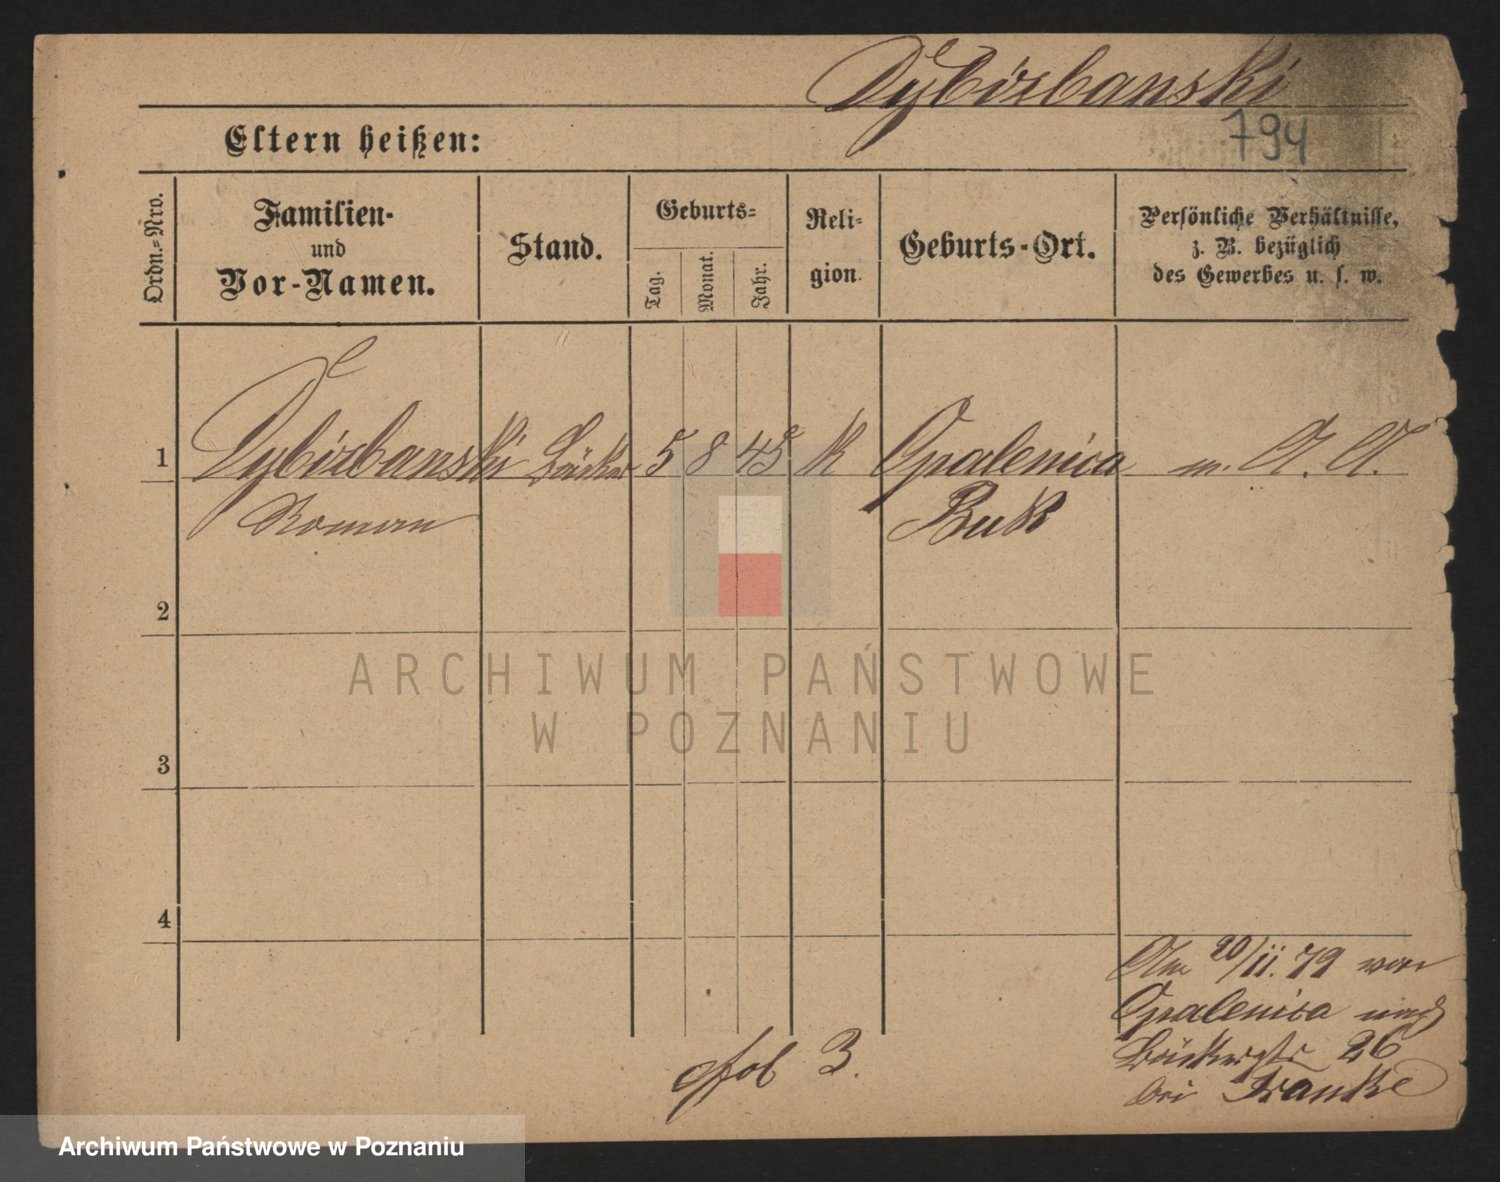 Dybizbanski
794
Eltern heißen:
Ordn.-Nro.
Familien-
und
Vor-Namen.
Stand.
Geburts-
Tag.
Monat.
Jahr.
Reli-
gion.
Geburts-Ort.
Persönliche Verhältnisse,
z. B. bezüglich
des Gewerbes u. s. w.
1 Dybizbanski Bäcker 5 8 45 K Opalenica m. A. A.
Roman Buk
2
3
4
Am 20/11. 79 von
Opalenica nach
Bäckerstr 26
bei Franke
fol 3.
ARCHIWUM PAŃSTWOWE
W POZNANIU
Archiwum Państwowe w Poznaniu